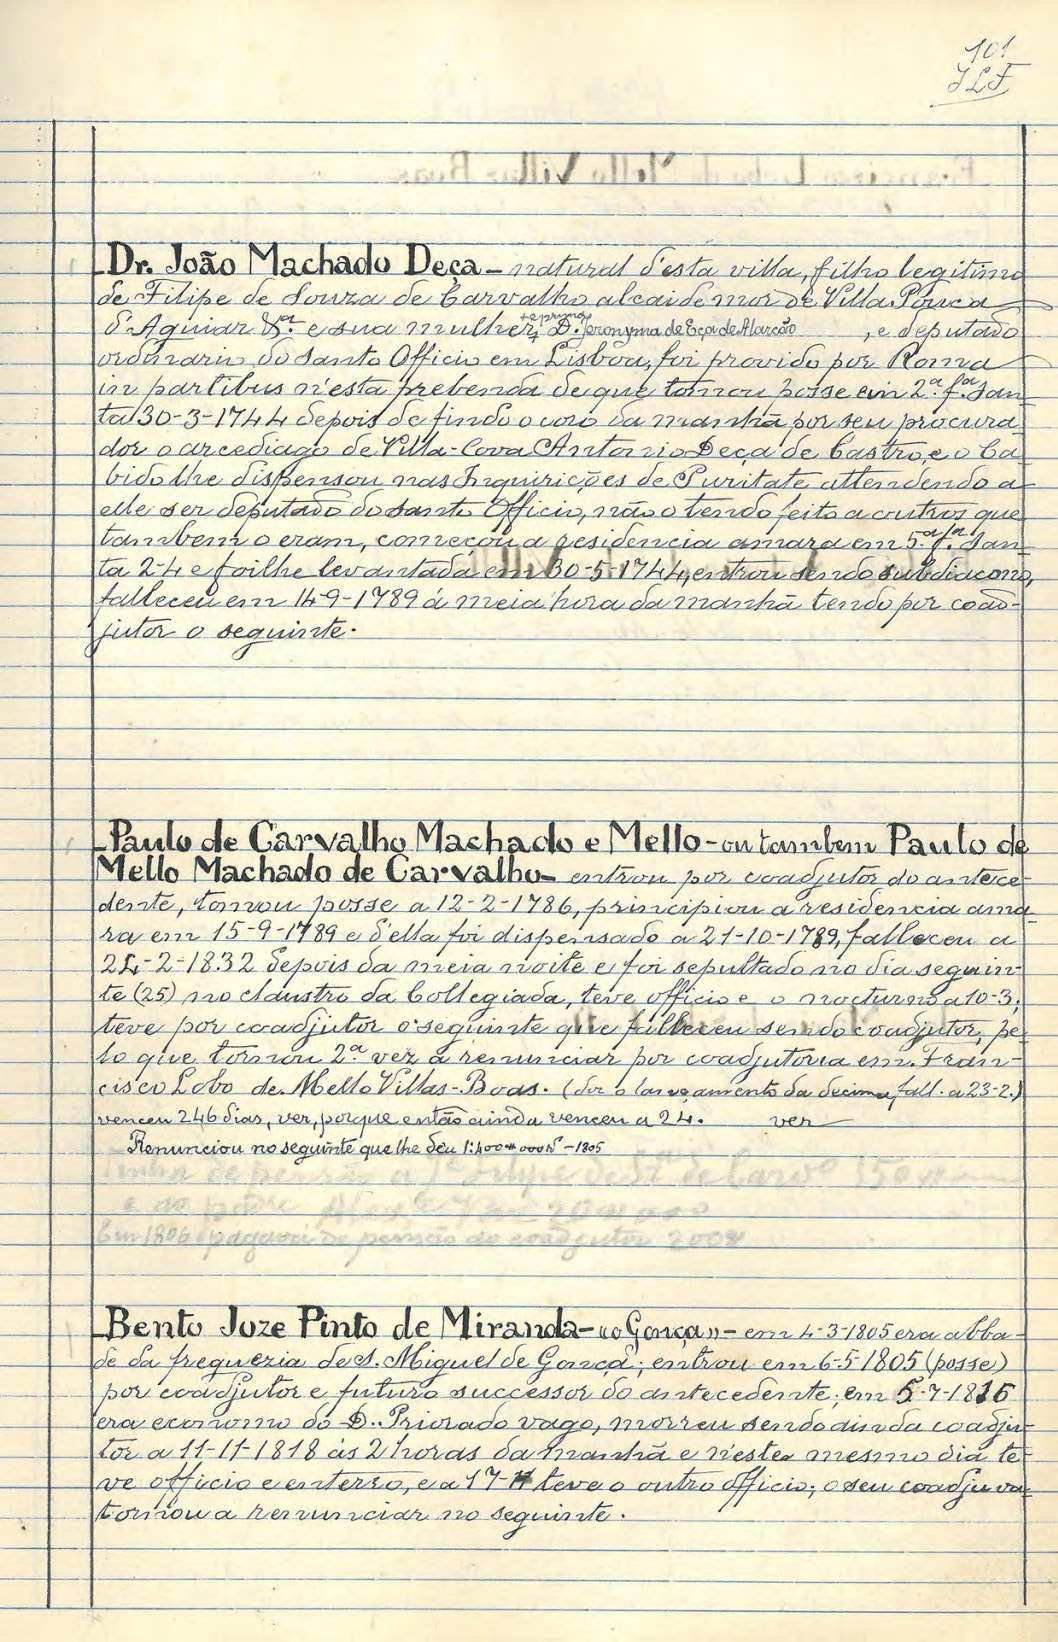 101
JLF
Dr. João Machado Deça - natural d'esta villa, filho legitimo
de Filipe de Souza de Carvalho alcaide mor de Villa Pouca
d'Aguiar &ª. e sua mulher, + e prima + D. Jeronyma de Eça de Alarcão, e deputado
ordinario do Santo Officio em Lisboa, foi provido por Roma
in partibus n'esta prebenda de que tomou posse em 2.ª f.ra San-
ta 30-3-1744 depois de findo o coro da manhã por seu procura-
dor o arcediago de Villa-Cova Antonio Deça de Castro, e o Ca-
bido lhe dispensou nas Inquirições de Puritate attendendo a
elle ser deputado do Santo Officio, não o tendo feito a outros que
tambem o eram, começou a residencia amara em 5.ª f.ra San-
ta 2-4 e foilhe levantada em 30-5-1744, entrou sendo subdiacono,
falleceu em 14-9-1789 á meia hora da manhã tendo por coad-
jutor o seguinte.
Paulo de Carvalho Machado e Mello - ou tambem Paulo de
Mello Machado de Carvalho - entrou por coadjutor do antece-
dente, tomou posse a 12-2-1786, principiou a residencia ama-
ra em 15-9-1789 e d'ella foi dispensado a 21-10-1789, falleceu a
24-2-1832 depois da meia noite e foi sepultado no dia seguin-
te (25) no claustro da Collegiada, teve officio e o nocturno a 10-3;
teve por coadjutor o seguinte que falleceu sendo coadjutor, pe-
lo que tornou 2.ª vez a renunciar por coadjutoria em Fran-
cisco Lobo de Mello Villas-Boas. (diz o lançamento da decima, fall. a 23-2.)
venceu 246 dias, ver, porque então ainda venceu a 24. ver
Renunciou no seguinte que lhe deu 1:400#000 rs - 1805
tinha de pensão a Filipe de Sz.ª de Carv.º 150#
Em 1806 pagava de pensão ao coadjutor 200#
Bento Joze Pinto de Miranda - «o Gonça» - em 4-3-1805 era abba-
de da freguezia de S. Miguel de Gonça; entrou em 6-5-1805 (posse)
por coadjutor e futuro successor do antecedente; em 5-7-1816
era economo do D. Priorado vago, morreu sendo ainda coadju-
tor a 11-11-1818 ás 2 horas da manhã e n'este mesmo dia te-
ve officio e enterro, e a 17-11 teve o outro officio; o seu coadjuva-
tornou a renunciar no seguinte.